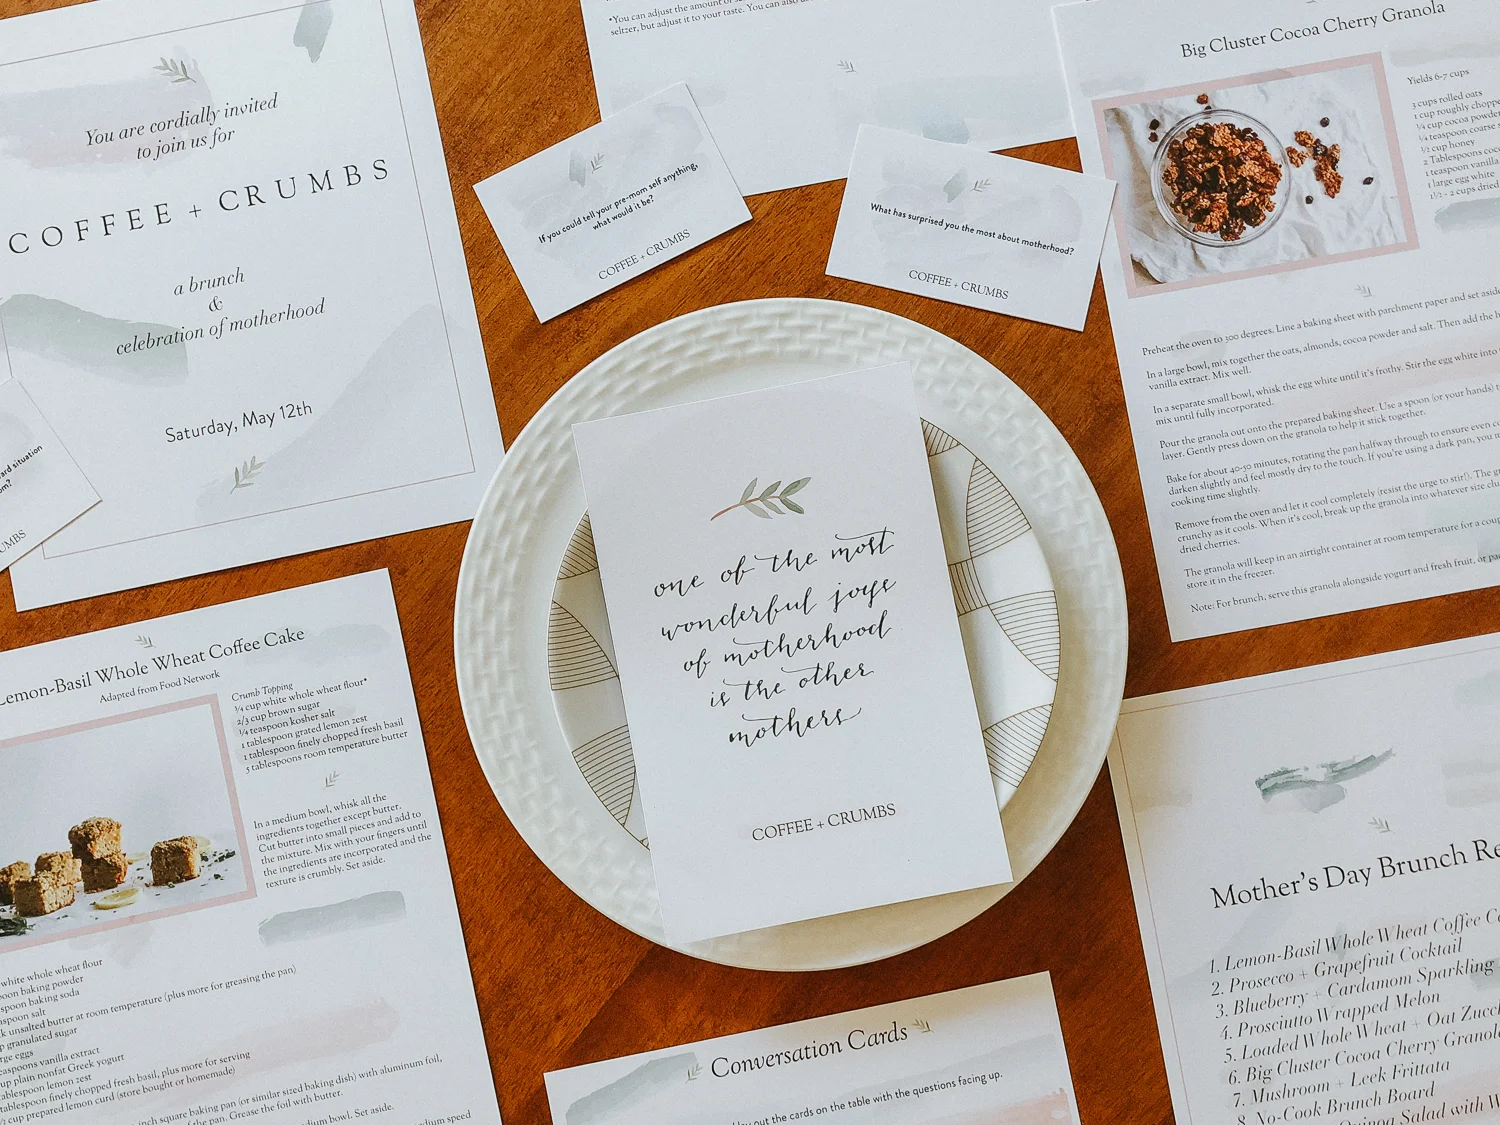 You are cordially invited
to join us for
COFFEE + CRUMBS
a brunch
&
celebration of motherhood
Saturday, May 12th
situation
•You can adjust the amount of
seltzer, but adjust it to your taste. You can also
If you could tell your pre-mom self anything,
what would it be?
COFFEE + CRUMBS
What has surprised you the most about motherhood?
COFFEE + CRUMBS
Big Cluster Cocoa Cherry Granola
Yields 6-7 cups
3 cups rolled oats
1 cup roughly
1/4 cup cocoa powder
1/4 teaspoon coarse
1/2 cup honey
2 Tablespoons
1 teaspoon vanilla
1 large egg white
1 1/2 - 2 cups dried
Preheat the oven to 300 degrees. Line a baking sheet with parchment paper and set aside.
In a large bowl, mix together the oats, almonds, cocoa powder and salt. Then add the
vanilla extract. Mix well.
In a separate small bowl, whisk the egg white until it's frothy. Stir the egg white into
mix until fully incorporated.
Pour the granola out onto the prepared baking sheet. Use a spoon (or your hands)
layer. Gently press down on the granola to help it stick together.
Bake for about 40-50 minutes, rotating the pan halfway through to ensure even
darken slightly and feel mostly dry to the touch. If you're using a dark pan, you
cooking time slightly.
Remove from the oven and let it cool completely (resist the urge to stir!). The
crunchy as it cools. When it's cool, break up the granola into whatever size
dried cherries.
The granola will keep in an airtight container at room temperature for a
store it in the freezer.
Note: For brunch, serve this granola alongside yogurt and fresh fruit, or
one of the most
wonderful joys
of motherhood
is the other
mothers
COFFEE + CRUMBS
Lemon-Basil Whole Wheat Coffee Cake
Adapted from Food Network
Crumb Topping
3/4 cup white whole wheat flour*
2/3 cup brown sugar
1/4 teaspoon kosher salt
1 tablespoon grated lemon zest
1 tablespoon finely chopped fresh basil
5 tablespoons room temperature butter
In a medium bowl, whisk all the
ingredients together except butter.
Cut butter into small pieces and add to
the mixture. Mix with your fingers until
the ingredients are incorporated and the
texture is crumbly. Set aside.
white whole wheat flour
baking powder
baking soda
salt
unsalted butter at room temperature (plus more for greasing the pan)
granulated sugar
eggs
vanilla extract
plain nonfat Greek yogurt
lemon zest
finely chopped fresh basil, plus more for serving
cup prepared lemon curd (store bought or homemade)
square baking pan (or similar sized baking dish) with aluminum foil,
of the pan. Grease the foil with butter.
bowl. Set aside.
speed
Conversation Cards
out the cards on the table with the questions facing up.
Mother's Day Brunch
1. Lemon-Basil Whole Wheat Coffee
2. Prosecco + Grapefruit Cocktail
3. Blueberry + Cardamom Sparkling
4. Prosciutto Wrapped Melon
5. Loaded Whole Wheat + Oat
6. Big Cluster Cocoa Cherry Granola
7. Mushroom + Leek Frittata
8. No-Cook Brunch Board
Quinoa Salad with